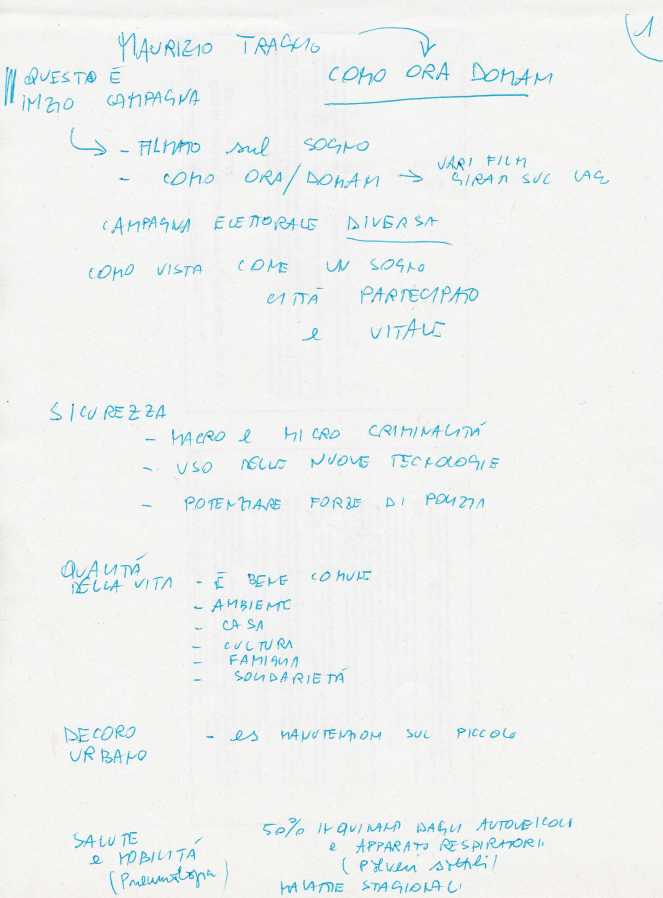 1
MAURIZIO TRAGLIO
COMO ORA DOMANI
QUESTO È
INIZIO CAMPAGNA
- FILMATO sul SOGNO
- COMO ORA/DOMANI → VARI FILM
GIRATI SUL LAGO
CAMPAGNA ELETTORALE DIVERSA
COMO VISTA COME UN SOGNO
CITTÀ PARTECIPATO
e VITALE
SICUREZZA
- MACRO e MICRO CRIMINALITÀ
- USO DELLE NUOVE TECNOLOGIE
- POTENZIARE FORZE DI POLIZIA
QUALITÀ
DELLA VITA - È BENE COMUNE
- AMBIENTE
- CASA
- CULTURA
- FAMIGLIA
- SOLIDARIETÀ
DECORO - es MANUTENZIONI SUL PICCOLO
URBANO
SALUTE
e MOBILITÀ
(Pneumologia)
50% INQUINANTI DAGLI AUTOVEICOLI
e APPARATO RESPIRATORIO
(Polveri sottili)
MALATTIE STAGIONALI